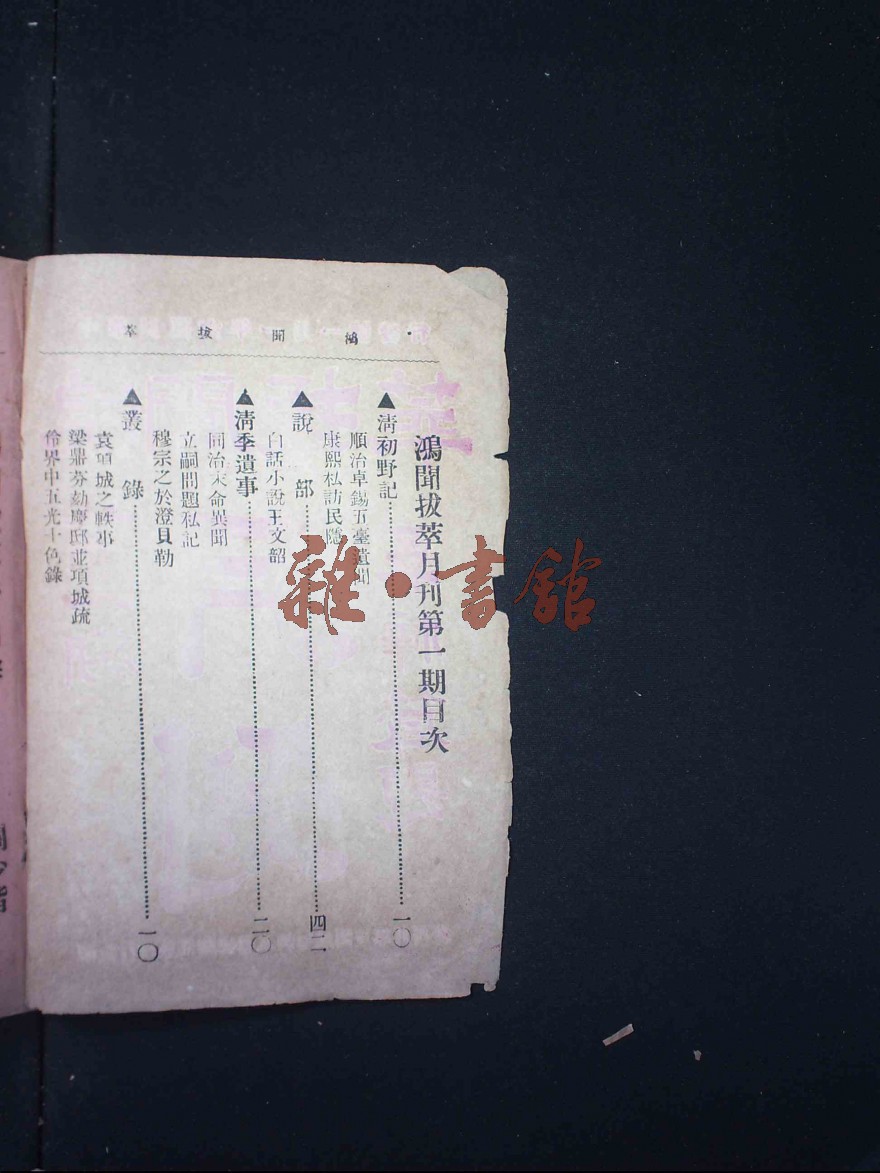 鴻聞拔萃
鴻聞拔萃月刊第一期目次
▲清初野記……一〇
順治卓錫五臺遺聞
康熙私訪民隱
▲說部……四二
白話小說王文韶
▲清季遺事……二〇
同治末命異聞
立嗣問題私記
穆宗之於澄貝勒
▲叢錄……一〇
袁項城之軼事
梁鼎芬劾慶邸並項城疏
伶界中五光十色錄
雜·書館